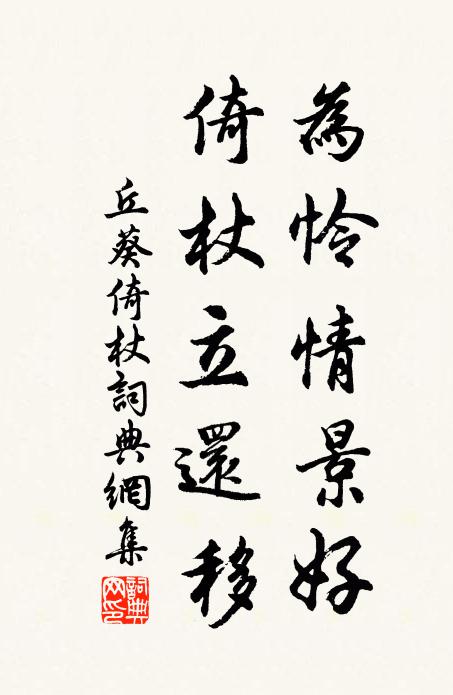 為怜情景好
倚杖立還移
丘葵倚杖詞典網集
詞典网印